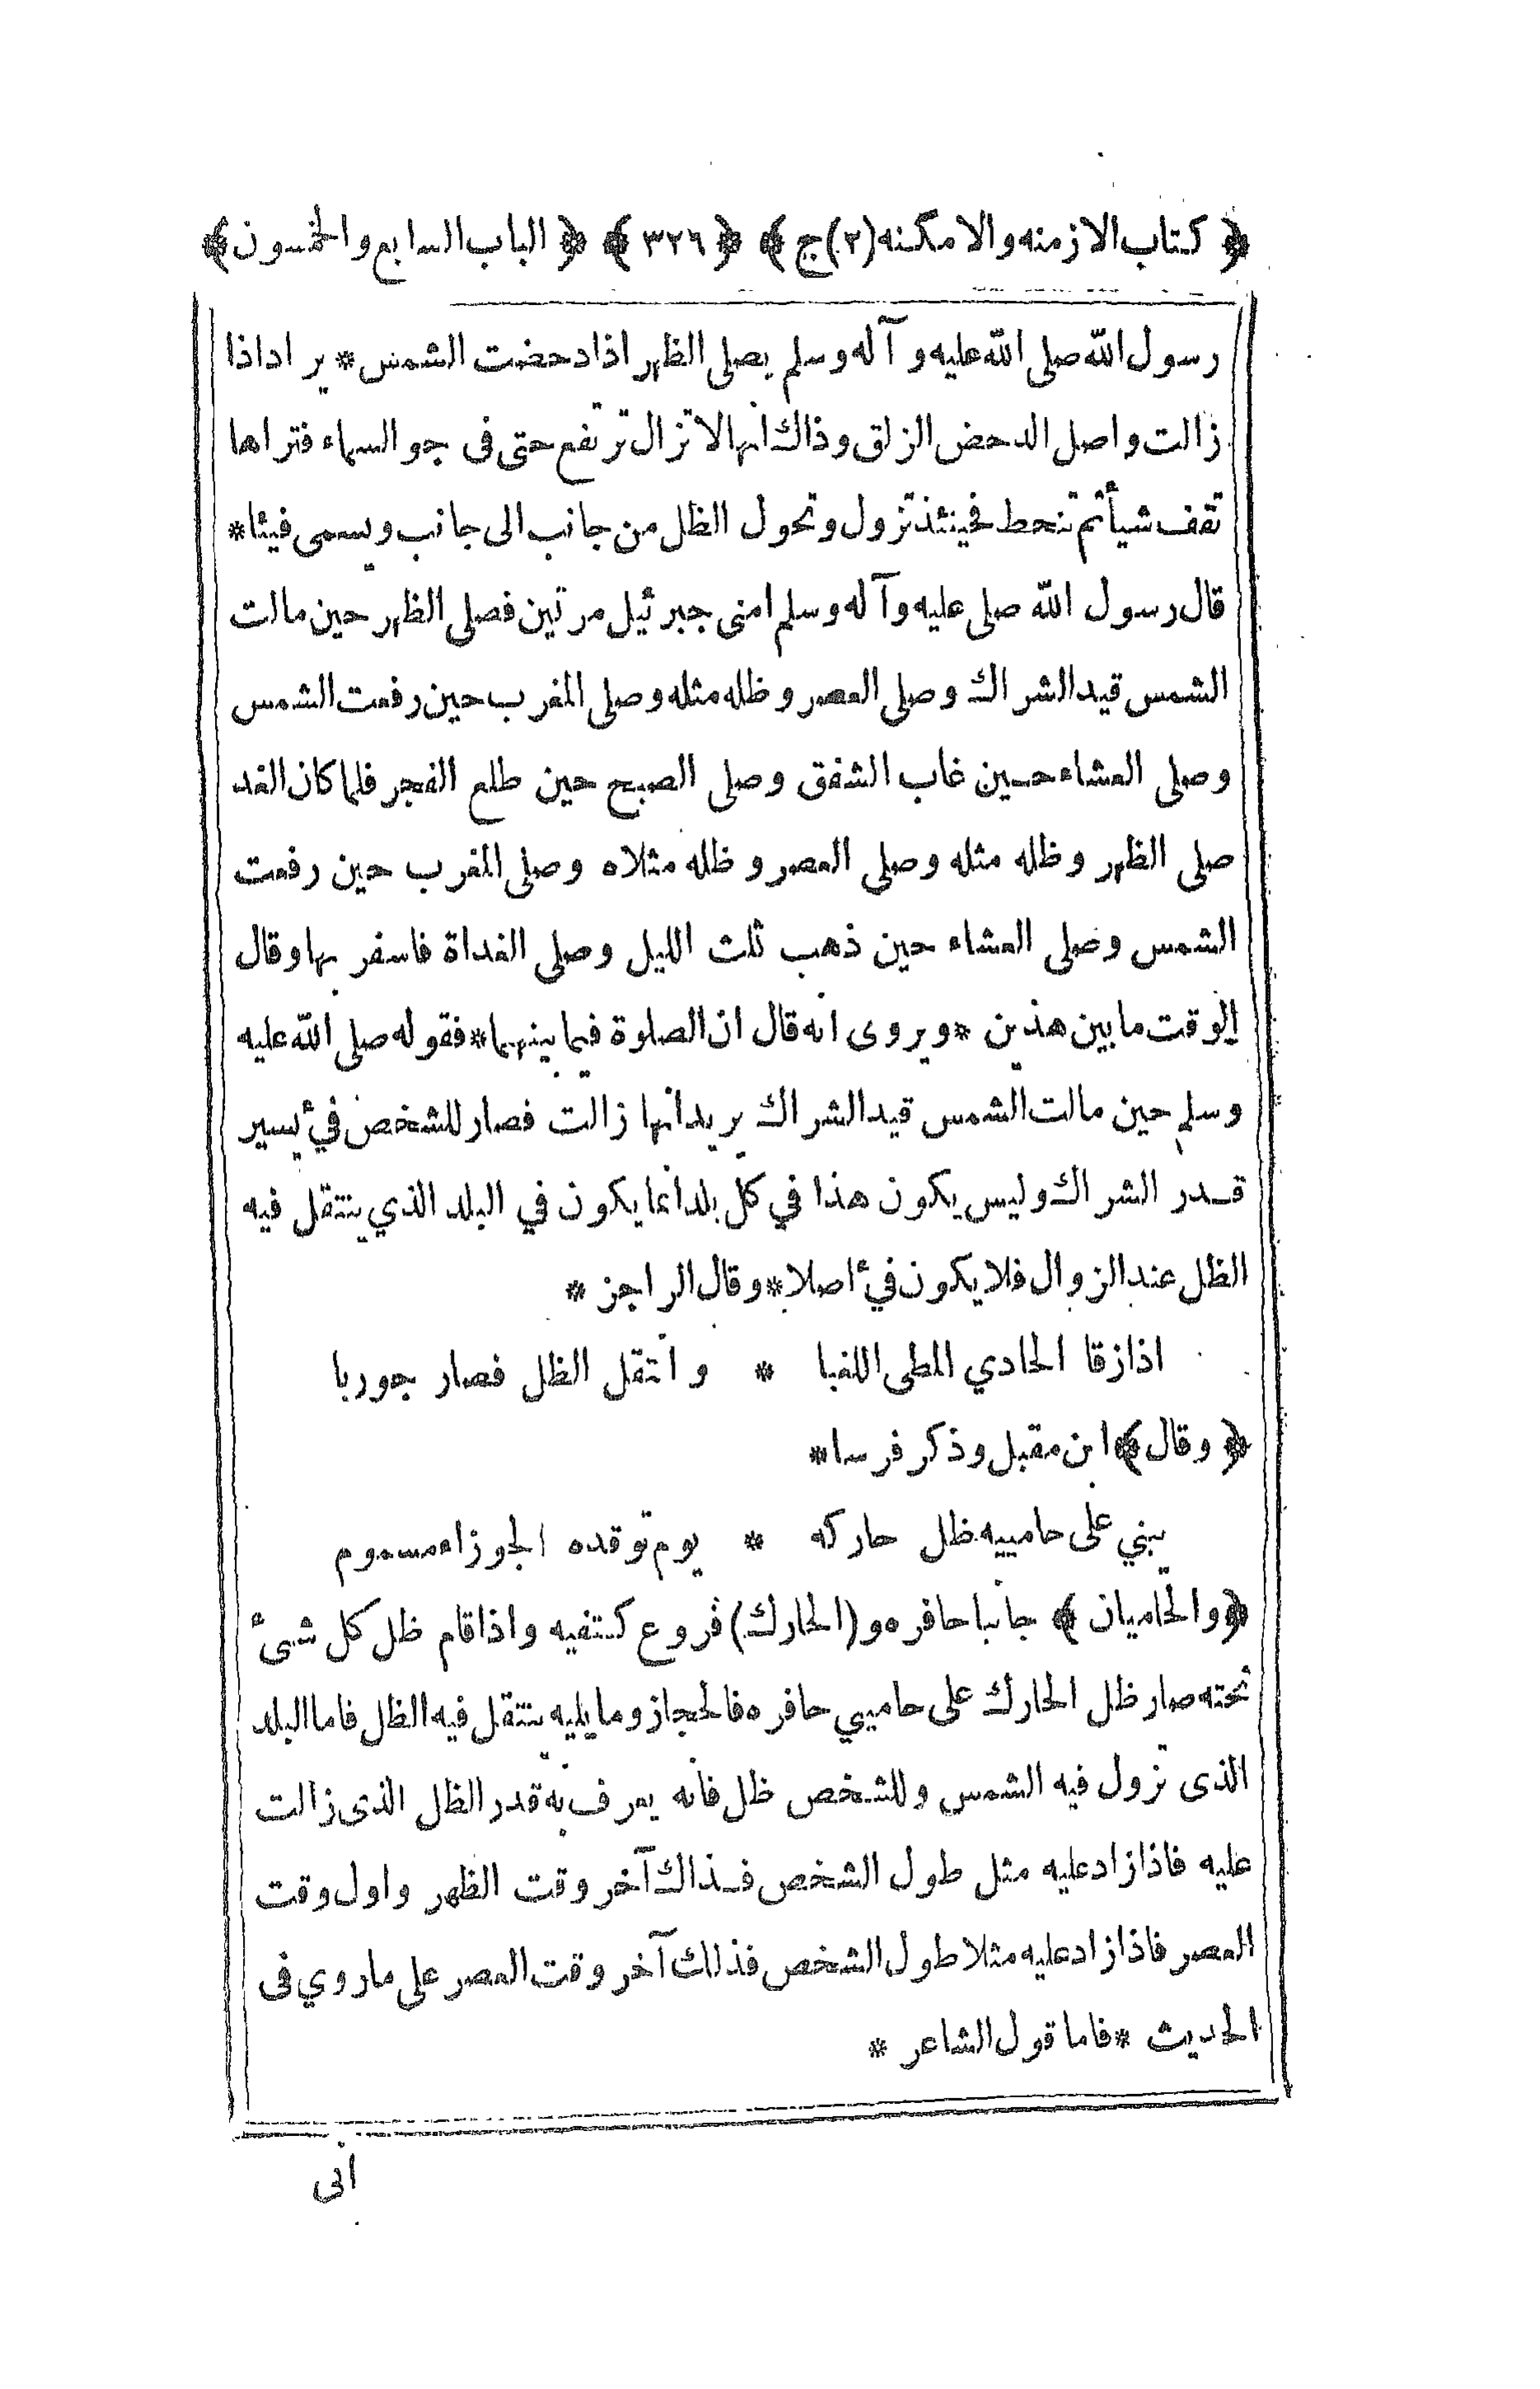 ﴿ كتاب الازمنه والامكنه (٢) ج ﴾ ﴿ ٣٢٦ ﴾ ﴿ الباب السابع والخمسون ﴾
رسول الله صلى الله عليه و آله وسلم يصلى الظهر اذا دحضت الشمس * يراد اذا
زالت واصل الدحض الزلق وذاك انها لا تزال ترتفع حتى فى جو السماء فتراها
تقف شيأ ثم تنحط فحينئذ تزول وتحول الظل من جانب الى جانب ويسمى فيئا *
قال رسول الله صلى عليه وآله وسلم امنى جبرئيل مرتين فصلى الظهر حين مالت
الشمس قيد الشراك وصلى العصر وظله مثله وصلى المغرب حين رفعت الشمس
وصلى العشاء حين غاب الشفق وصلى الصبح حين طلع الفجر فلما كان الغد
صلى الظهر وظله مثله وصلى العصر وظله مثلاه وصلى المغرب حين رفعت
الشمس وصلى العشاء حين ذهب ثلث الليل وصلى الغداة فاسفر بها وقال
الوقت ما بين هذين * ويروى انه قال ان الصلوة فيما بينهما * فقوله صلى الله عليه
وسلم حين مالت الشمس قيد الشراك يريد انها زالت فصار للشخص فيء يسير
قدر الشراك وليس يكون هذا في كل بلد انما يكون في البلد الذي ينتقل فيه
الظل عند الزوال فلا يكون فيء اصلا * وقال الراجز *
اذا زقا الحادي المطى اللغبا * وانتقل الظل فصار جوربا
﴿ وقال ﴾ ابن مقبل وذكر فرسا *
يبني على حامييه ظل حاركه * يوم توقده الجوزاء مسموم
﴿ والحاميان ﴾ جانبا حافره و (الحارك) فروع كتفيه واذا قام ظل كل شىء
تحته صار ظل الحارك على حاميي حافره فالحجاز وما يليه ينتقل فيه الظل فاما البلد
الذى تزول فيه الشمس وللشخص ظل فانه يعرف به قدر الظل الذى زالت
عليه فاذا زاد عليه مثل طول الشخص فذاك آخر وقت الظهر واول وقت
العصر فاذا زاد عليه مثلا طول الشخص فذلك آخر وقت العصر على ما روي فى
الحديث * فاما قول الشاعر *
انى